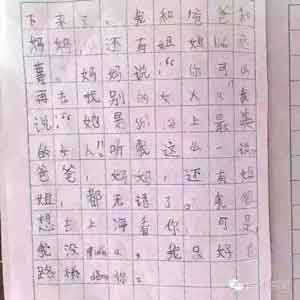 下来了。我和爸爸和
妈妈,还有姐姐
喜。妈妈说:“你可以
再去找别的女人。”我
说:“她是上最美
的女人。”听我这么一说,
爸爸,妈妈,还有姐
姐,都无语了。我
想去上海看你,可是
我没qian,我只好在
路桥deng你。